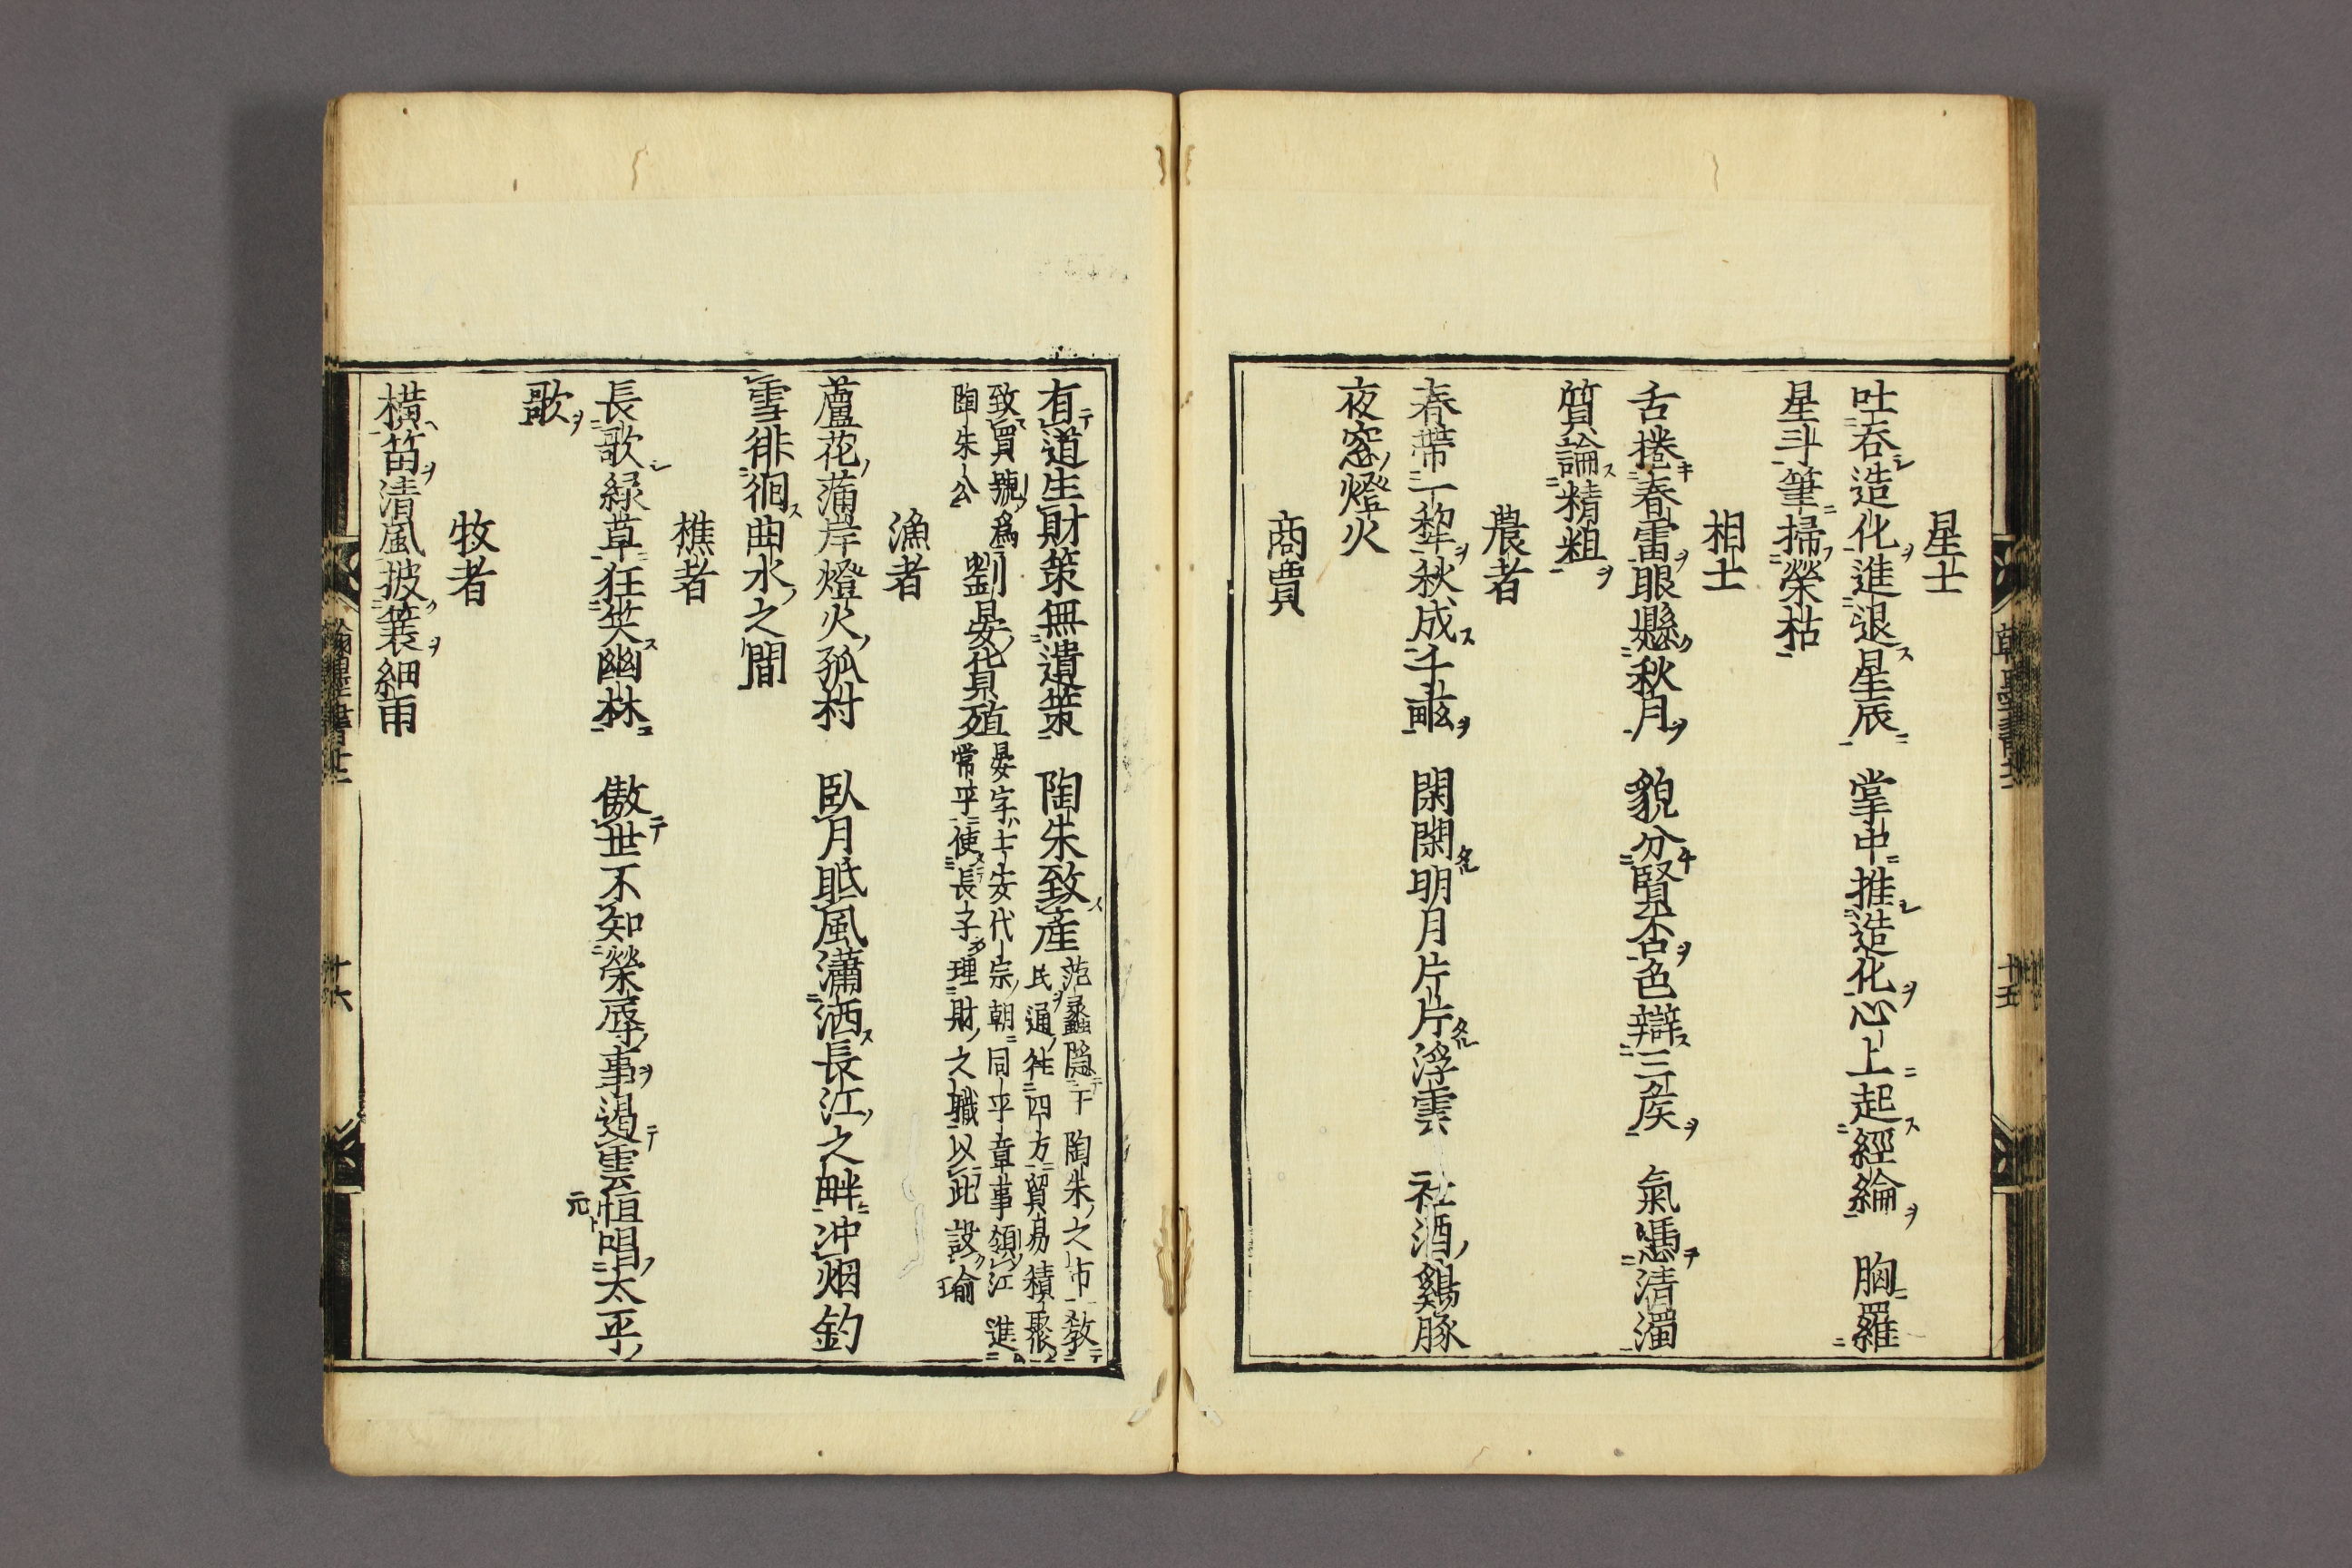 星士
吐吞造化進退星辰　掌中推造化心上起經綸　胸羅
星斗筆掃榮枯
相士
舌捲春雷眼懸秋月　貌分賢否色辯三矦　氣憑清濁
質論精粗
農者
春帶一犂秋成千畝　閑閑明月片片浮雲　社酒鷄豚
夜窓燈火
商賈
十五
有道生財策無遺策　陶朱致產范蠡隱于陶朱之市教
民通徃四方貿易積聚
致買號爲
陶朱公
劉晏貨殖晏字士安代宗朝同平章事領江進
常平使長子理財之職以此設瑜
漁者
蘆花蒲岸燈火孤村　臥月眠風瀟洒長江之畔冲烟釣
雪徘徊曲水之間
樵者
長歌緑草狂笑幽林　傲世不知榮辱事遏雲恒唱太平
元
歌
牧者
橫笛清風披簑細雨
翰墨書
十六